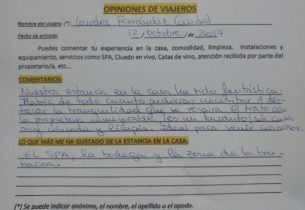 OPINIONES DE VIAJEROS
Nombre del viajero: (*) Lourdes Fernández
Fecha de entrada: 12, octubre, de 2017
Puedes comentar tu experiencia en la casa, comodidad, limpieza, instalaciones y
equipamiento, servicios como SPA, Cluedo en vivo, Catas de vino, atención recibida por parte del
propietario/a, etc...
COMENTARIOS:
Nuestra estancia en la casa ha sido fantástica
Había de todo cuanto pudieras necesitar. A des-
tacar la tranquilidad que se respira. El trato con
la propietaria inmejorable, es un encanto! La casa
muy cómoda y limpia. Ideal para venir con niños.
LO QUE MÁS ME HA GUSTADO DE LA ESTANCIA EN LA CASA:
EL SPA, la bodega y la zona de la bar-
bacoa.
(*) Se puede indicar anónimo, el nombre, el apellido o el apodo.